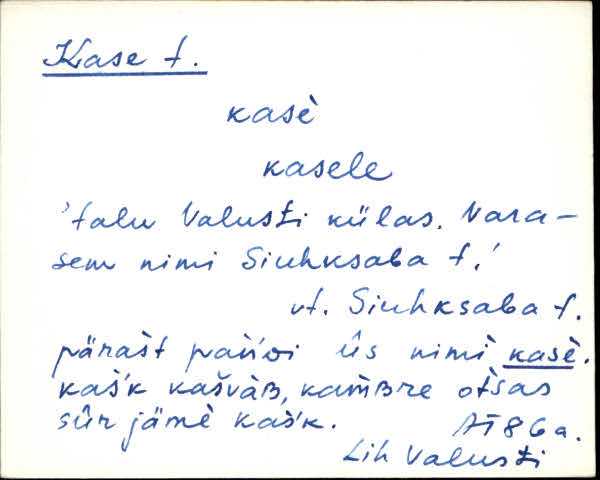 Kase t.
kasè
kasele
'talu Valusti külas. Vara-
sem nimi Siuhksaba t.'
vt. Siuhksaba t.
pärašt pań'di ûs nimì kasè.
kaš'k kašvàʙ, kam̀ʙre otšas
sûr jämè kaš'k. AT 86a.
Lih Valusti